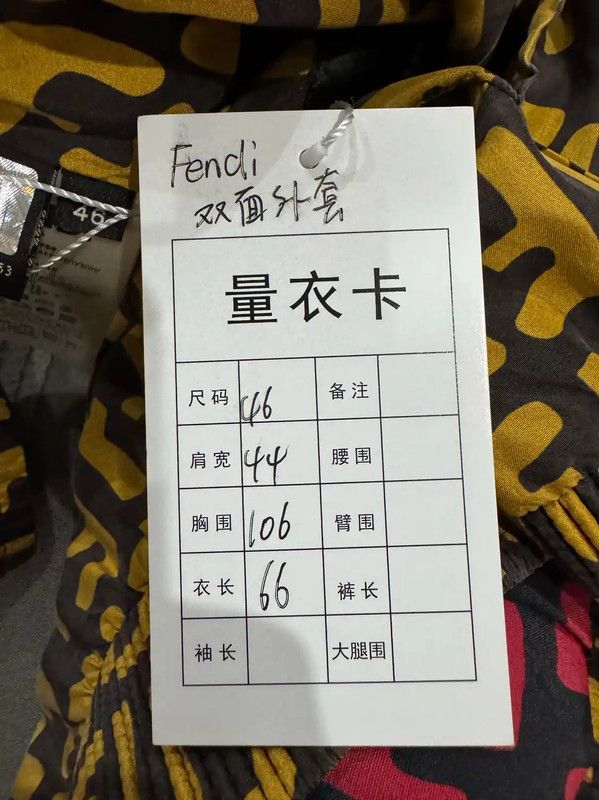 Fendi
双面外套
量衣卡
尺码 46 备注
肩宽 44 腰围
胸围 106 臂围
衣长 66 裤长
袖长 大腿围
46
53